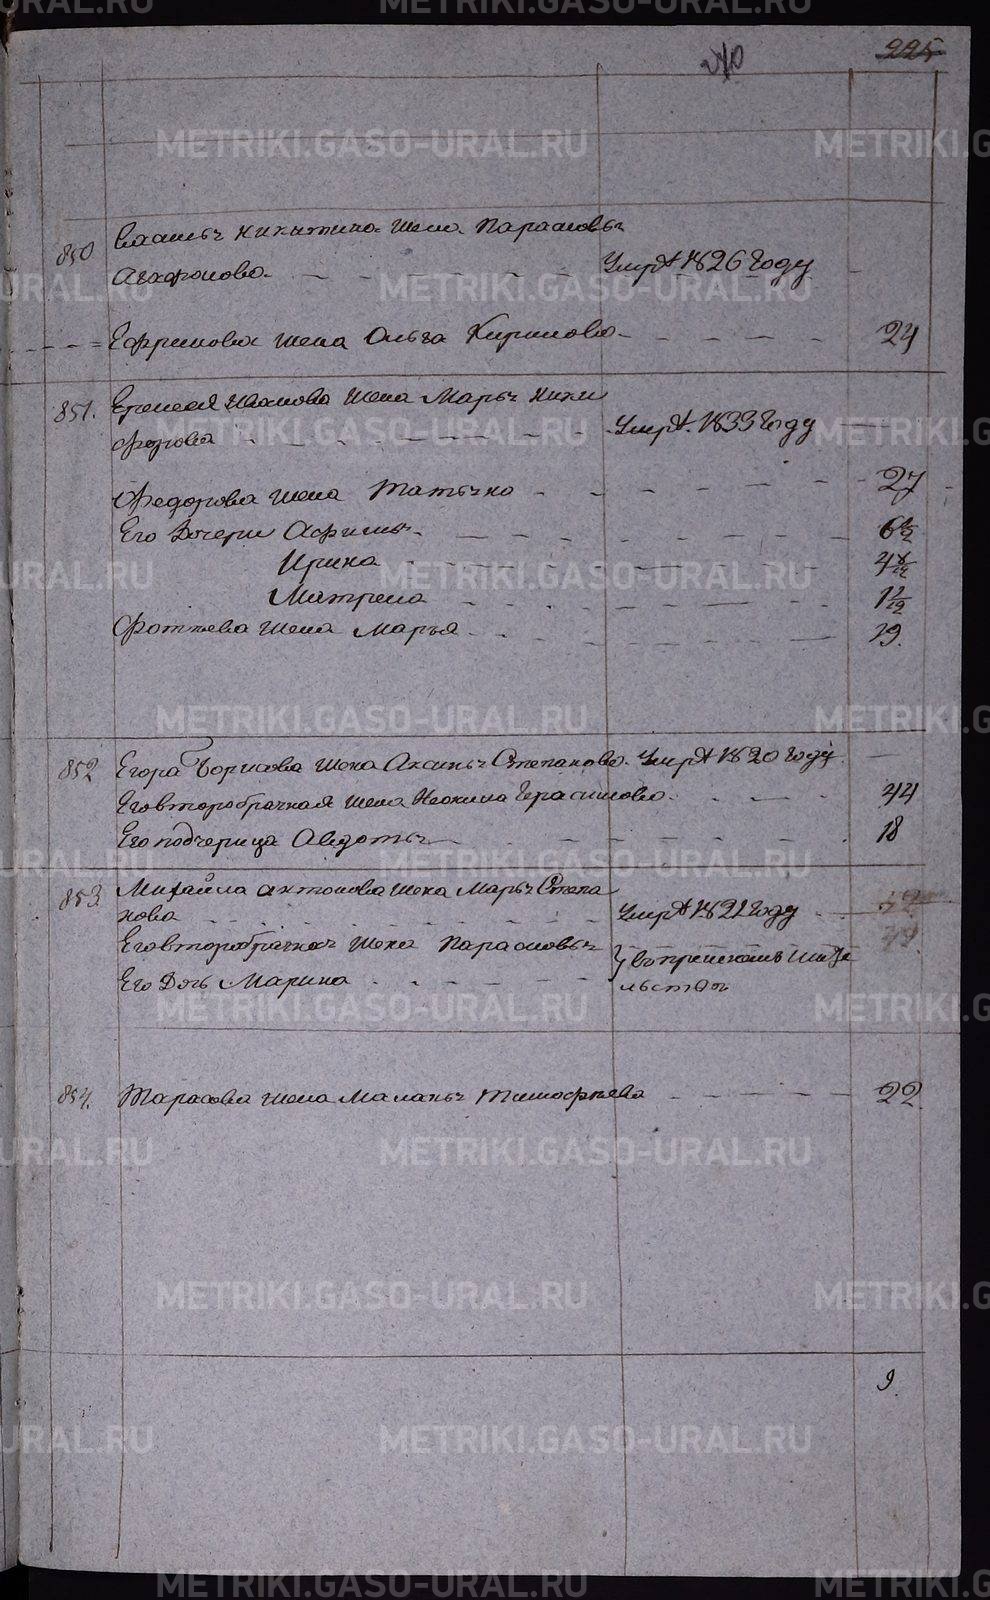 240
225
850 Никитина жена Парасковья
Агафонова умре 1826 году
Ефримова жена Ольга Кирилова 24
851. Еремея Иванова жена Марья Ники
форова умре. 1833 году
Федорова жена Татьяна 27
Его дочери Афимья 6
Ирина 4
Матрена 1
Фотеева жена Марья 19.
852 Егора Борисова жена Аксинья Степанова. умре 1820 году
Его второбрачная жена Герасимова 44
Его подчерица Авдотья 18
853 Михайла Антонова жена Марья Степа
нова умре 1821 году
Его второбрачная жена Парасковья
Его дочь Марина
854. Тарасова жена Маланья Тимофеева 22
9.
METRIKI.GASO-URAL.RU